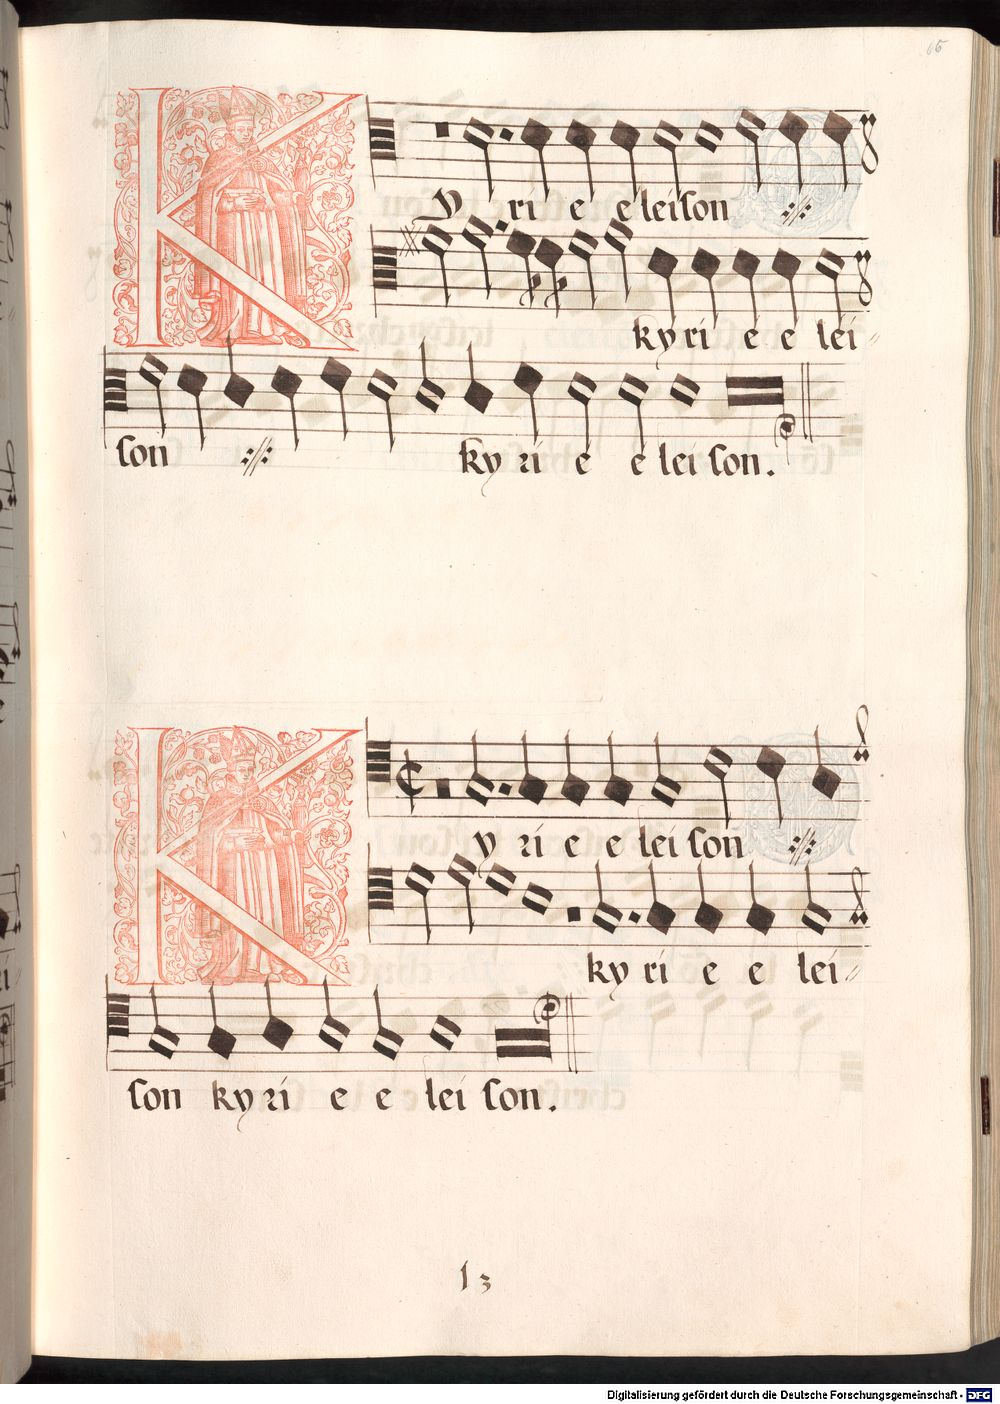 66
Ky ri e e leison
kyri e e lei
son ky ri e e lei son.
Ky ri e e lei son
ky ri e e lei
son ky ri e e lei son.
l 3
Digitalisierung gefördert durch die Deutsche Forschungsgemeinschaft - DFG